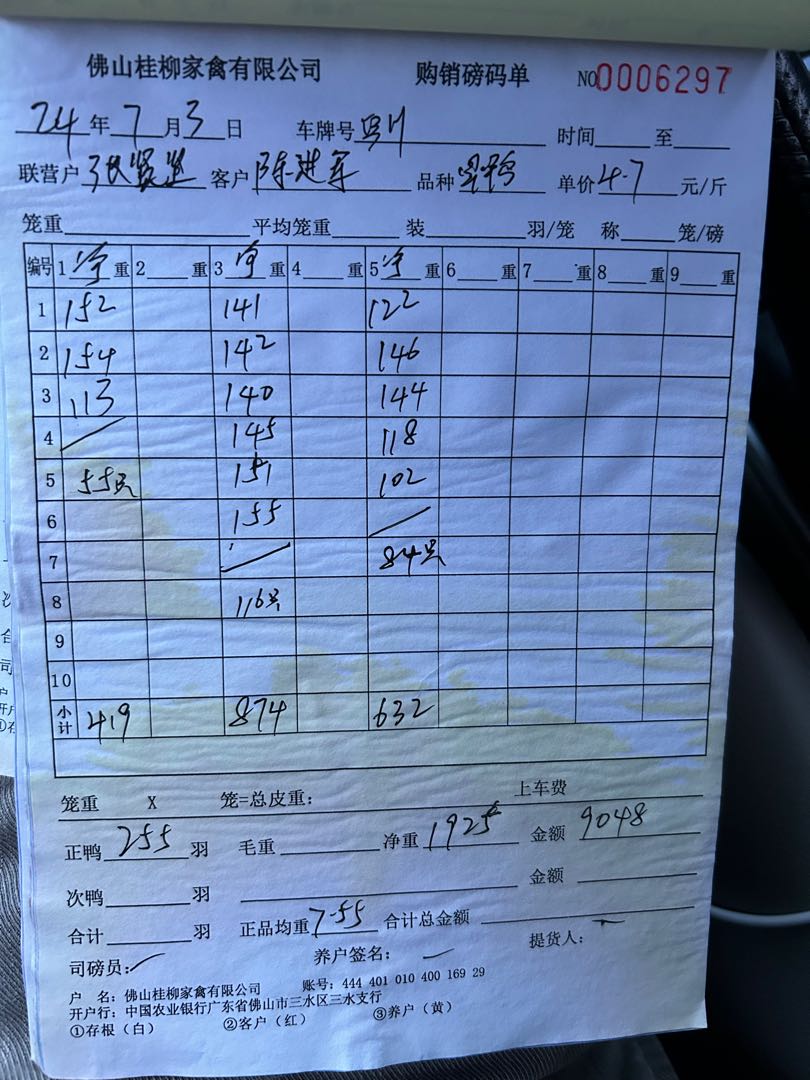 佛山桂柳家禽有限公司 购销磅码单 NO0006297
24年7月3日 车牌号 时间 至
联营户 客户 陈进军 品种 单价4.7元/斤
笼重 平均笼重 装 羽/笼 称 笼/磅
编号 1净重 2 重 3净重 4 重 5净重 6 重 7 重 8 重 9 重
1 152 141 122
2 154 142 146
3 113 140 144
4 145 118
5 55只 151 102
6 155
7 84只
8 116只
9
10
小计 419 874 632
笼重 X 笼=总皮重: 上车费
正鸭255羽 毛重 净重1925 金额9048
次鸭 羽 金额
合计 羽 正品均重7.55 合计总金额
司磅员: 养户签名: 提货人:
户 名: 佛山桂柳家禽有限公司 账号: 444 401 010 400 169 29
开户行: 中国农业银行广东省佛山市三水区三水支行
①存根(白) ②客户(红) ③养户(黄)